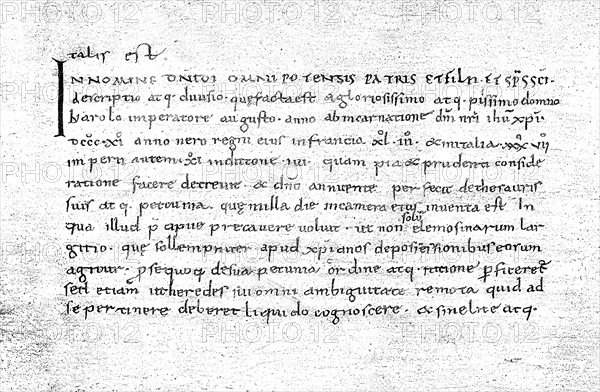 talis est
IN NOMINE DNI DI OMNIPOTENSIS PATRIS ET FILII ET SPS SCI
descriptio atq. divisio. que facta est a gloriosissimo atq. piissimo domno
karolo imperatore augusto. anno ab incarnatione dni nri ihu xpi.
DCCC. XI. anno vero regni eius in francia XL. III. & in italia. XXX VII
imperii autem. XI. indictione IIII. quam pia & prudenti conside
ratione facere decrevit. & dno annuente perfecit de thesauris
suis atq. pecunia. que in illa die in camera eius inventa est. In
qua illud p cipue precavere voluit. ut non solū elemosinarum lar
gitio. que sollempniter apud xpianos de possessionibus eorum
agitur. p se quoq. de sua pecunia ordine atq. ratione pficeret
sed etiam ut heredes sui omni ambiguitate remota quid ad
se pertinere deberet liquido cognoscere. & sine lite atq.